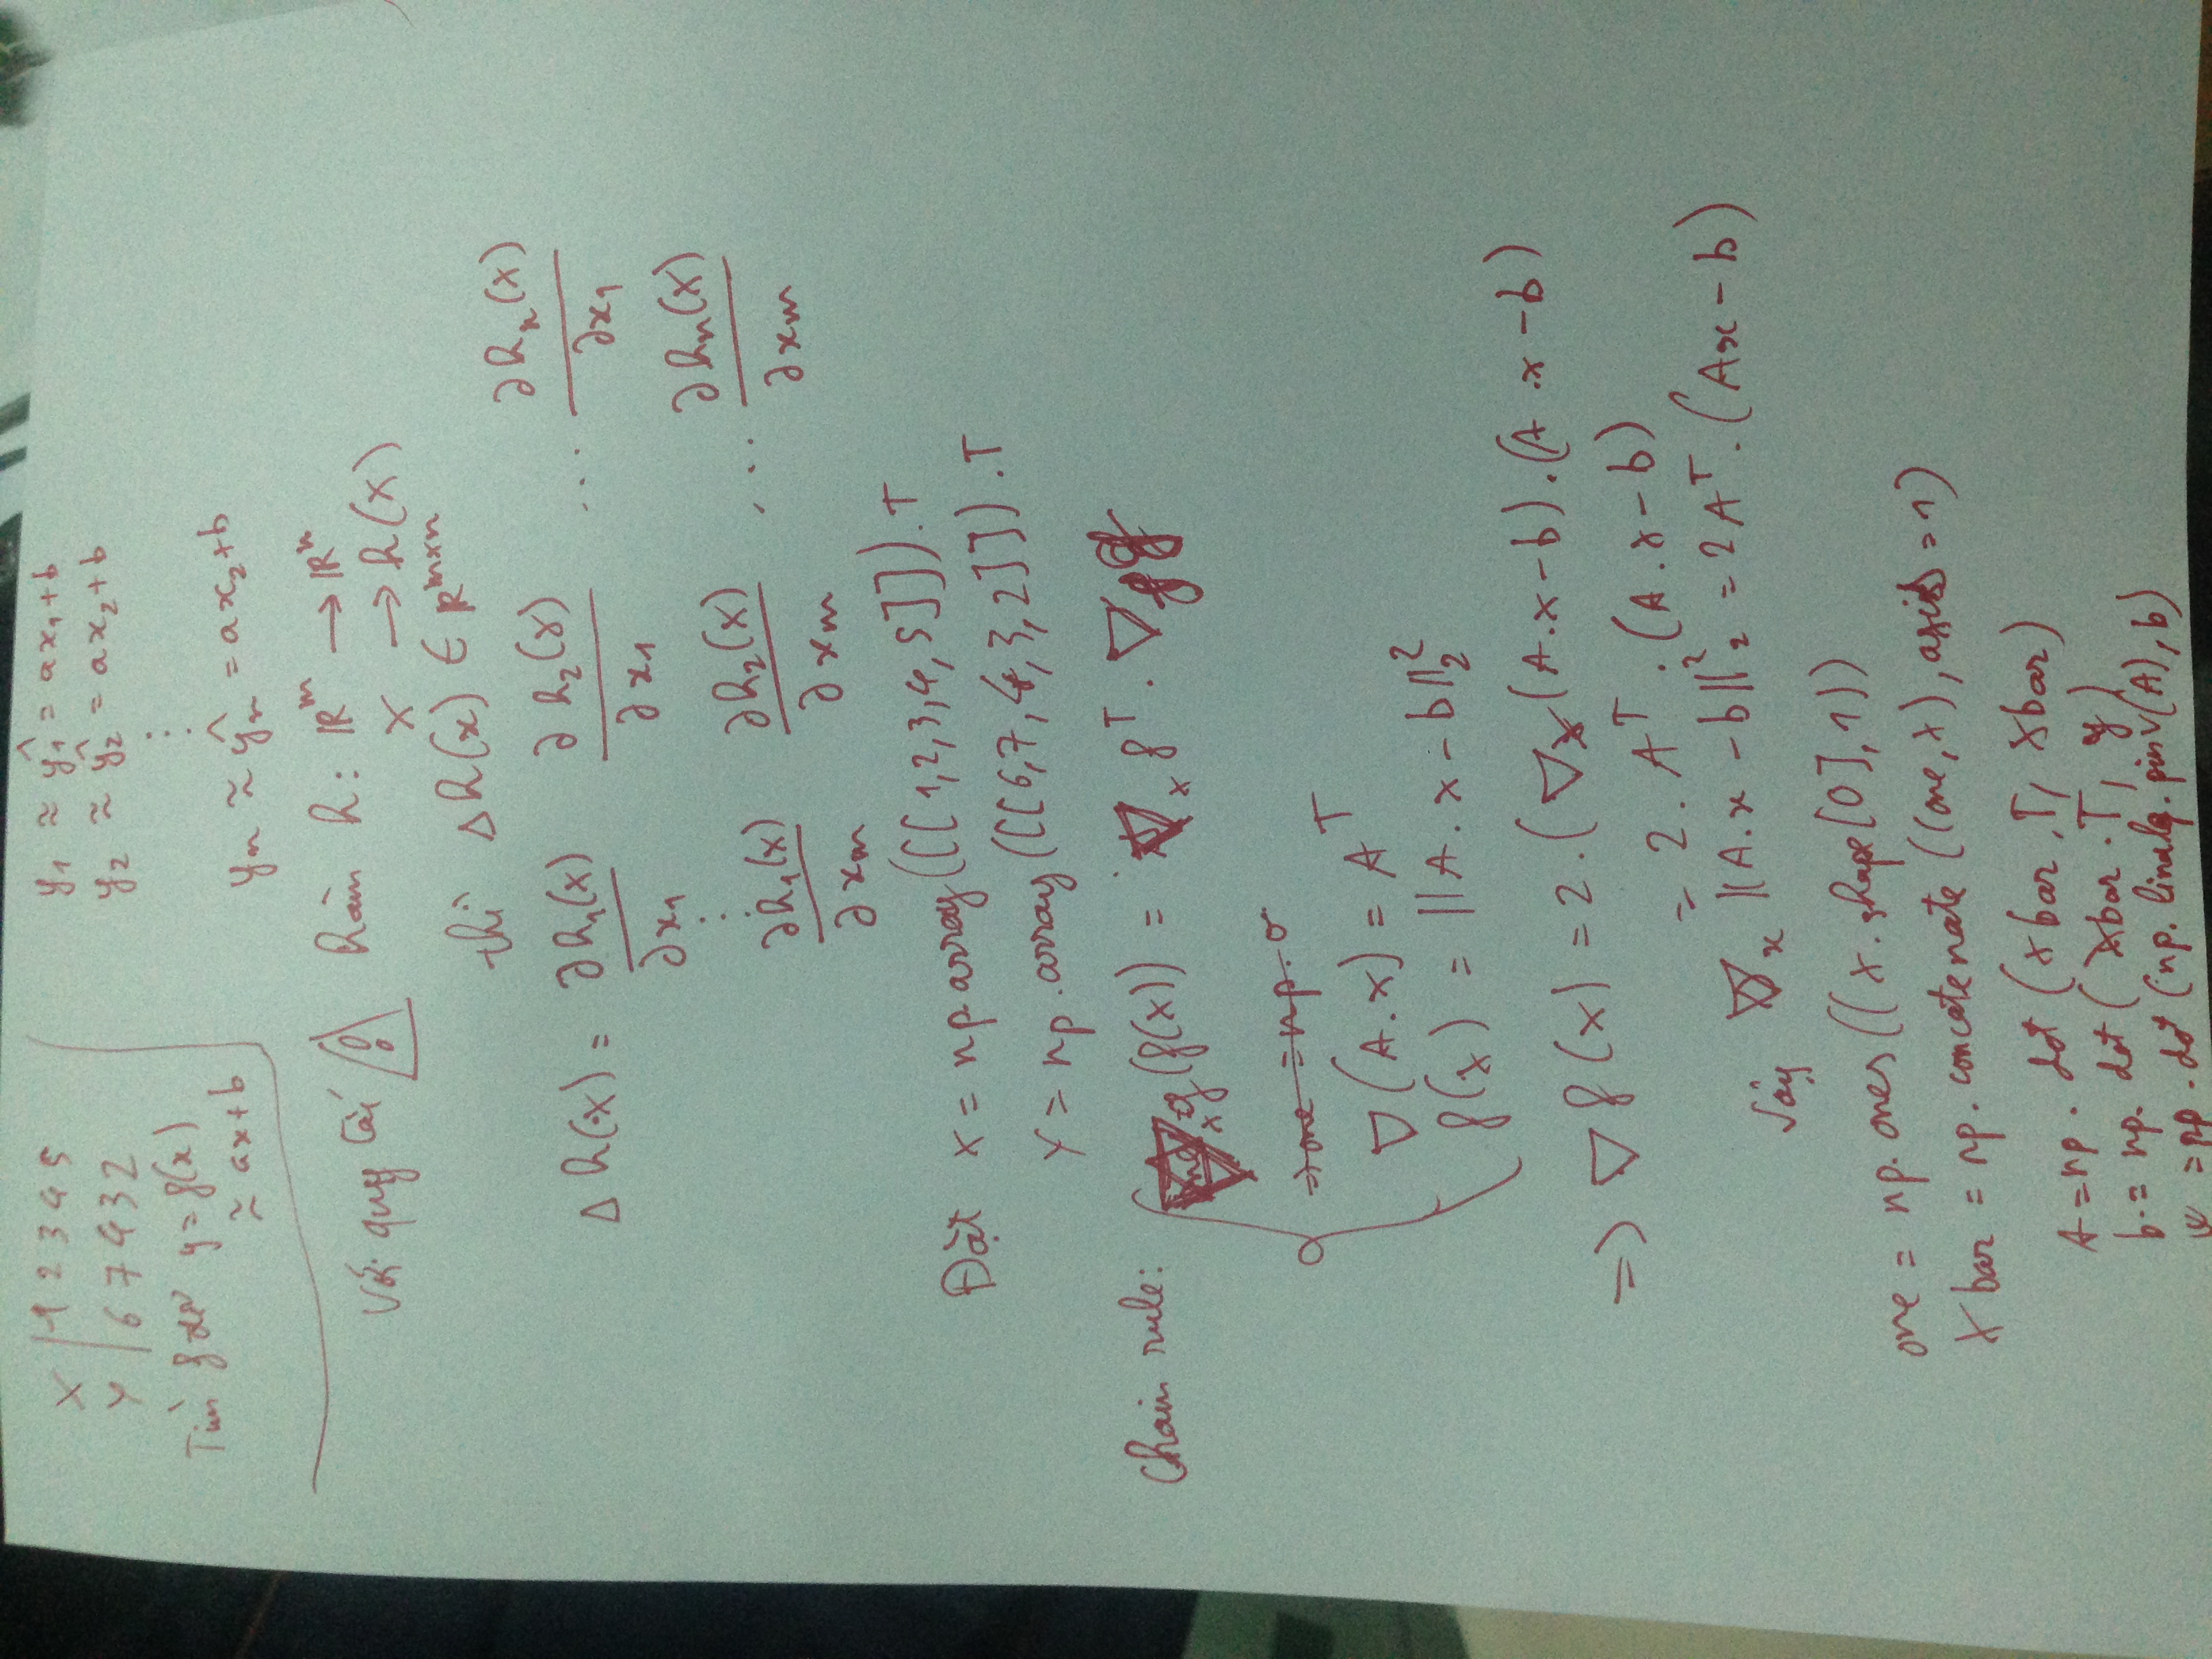 X | 1 2 3 4 5
Y | 6 7 4 3 2
Tìm f để y = f(x)
≈ ax+b
y₁ ≈ ŷ₁ = ax₁+b
y₂ ≈ ŷ₂ = ax₂+b
⋮
yₙ ≈ ŷₙ = ax₂+b
Với quy tắc ! hàm h: ℝᵐ → ℝⁿ
X → h(X)
thì Δh(x) ∈ ℝᵐˣⁿ
Δh(x) = ∂h₁(x)/∂x₁ ∂h₂(x)/∂x₁ ... ∂hₙ(x)/∂x₁
⋮
∂h₁(x)/∂xₘ ∂h₂(x)/∂xₘ ... ∂hₙ(x)/∂xₘ
Đặt X = np.array([[1,2,3,4,5]]).T
Y = np.array([[6,7,4,3,2]]).T
Chain rule: ∇ₓg(f(x)) = ∇ₓf^T . ∇_f g
=> one = np.o
∇(A.x) = A^T
f(x) = ||A.x-b||₂²
=> ∇f(x) = 2.(∇ₓ(A.x-b).(A.x-b)
= 2. A^T . (A.x-b)
Vậy ∇ₓ ||A.x-b||₂² = 2A^T.(Ax-b)
one = np.ones((X.shape[0],1))
Xbar = np.concatenate((one,X),axis=1)
A = np.dot(Xbar.T, Xbar)
b = np.dot(Xbar.T, y)
w = np.dot(np.linalg.pinv(A),b)